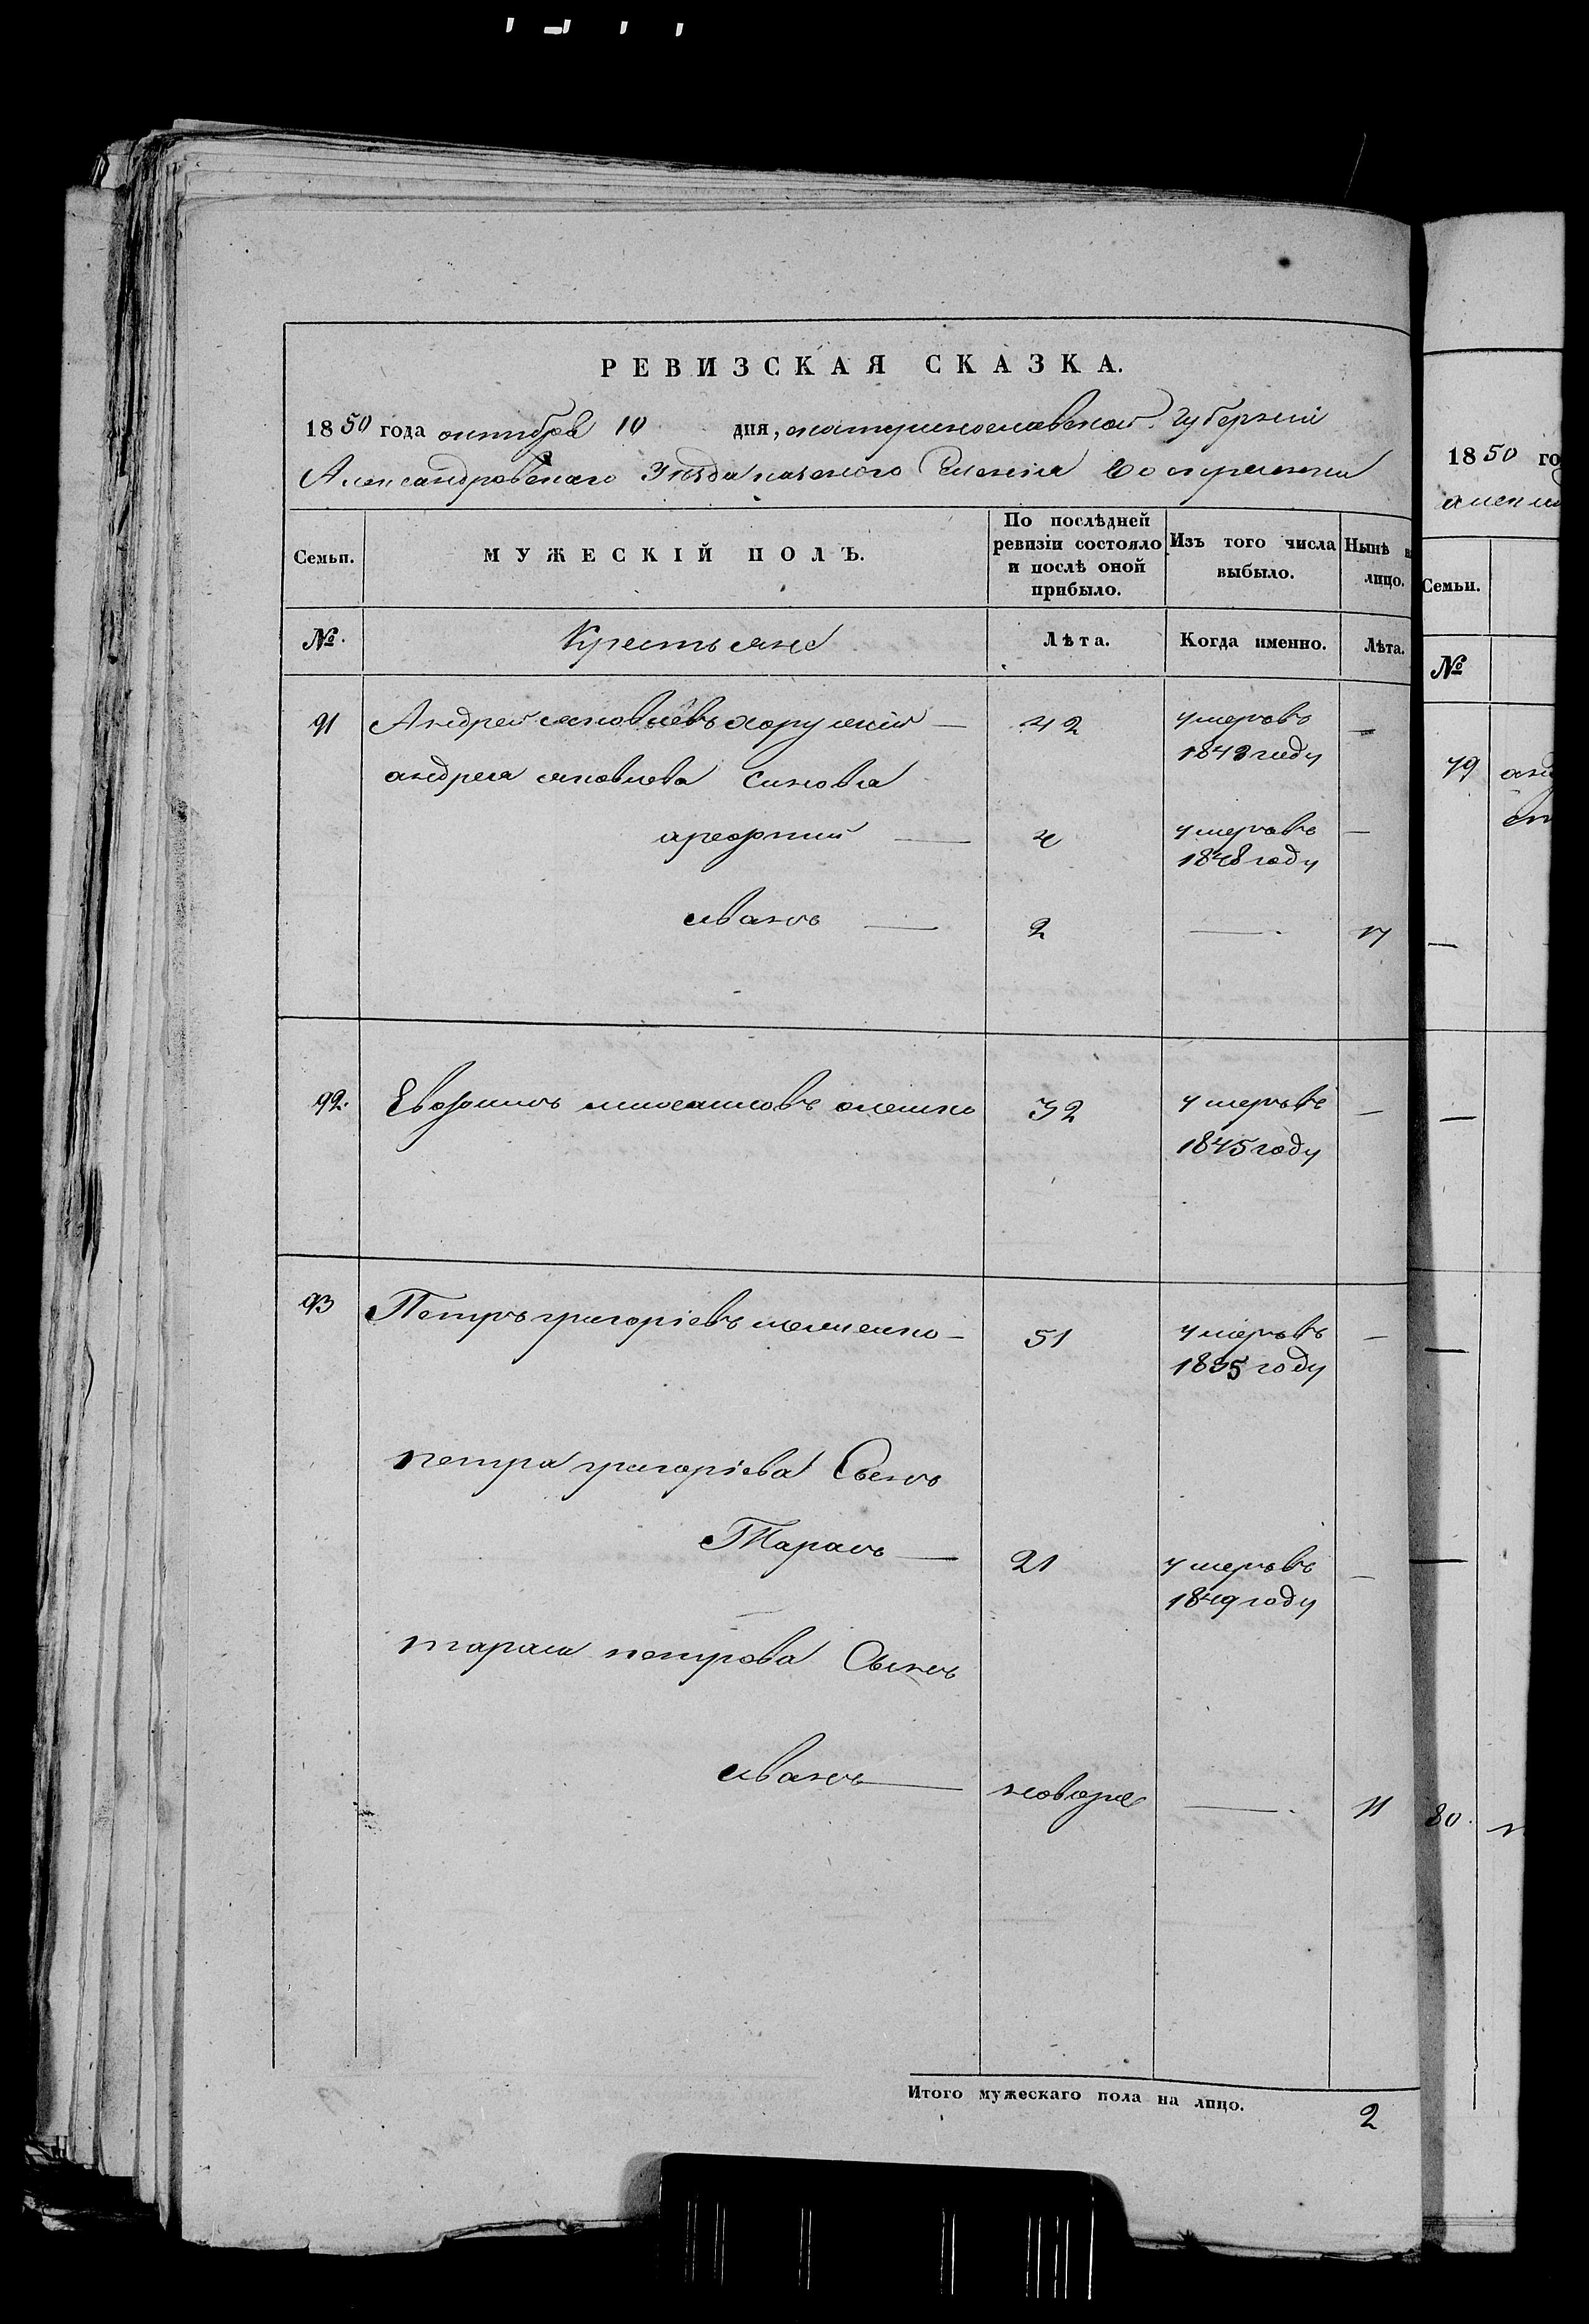 РЕВИЗСКАЯ СКАЗКА.
1850 года октября 10 дня, екатеринославской губерніи
Александровскаго Уезда казенного Селенія Воскресенки
Семьи. МУЖЕСКІЙ ПОЛЪ. По послѣдней ревизіи состояло и послѣ оной прибыло. Изъ того числа выбыло. Нынѣ лицо.
№. Крестьяне Лѣта. Когда именно. Лѣта.
91 Андрей яковлевъ — 42 умеръ въ 1843 году —
андрея яковлева Синовя
— 4 умеръ въ 1848 году —
иванъ — 2 — 17
92. олешко 32 умеръ въ 1845 году —
93 Петръ григоріевъ — 51 умеръ въ 1835 году —
петра григоріева Сынъ
Тарасъ — 21 умеръ въ 1849 году —
тараса петрова Сынъ
иванъ — новорож — 11
Итого мужескаго пола на лицо. 2
1850 го
Семьи.
№
79
80